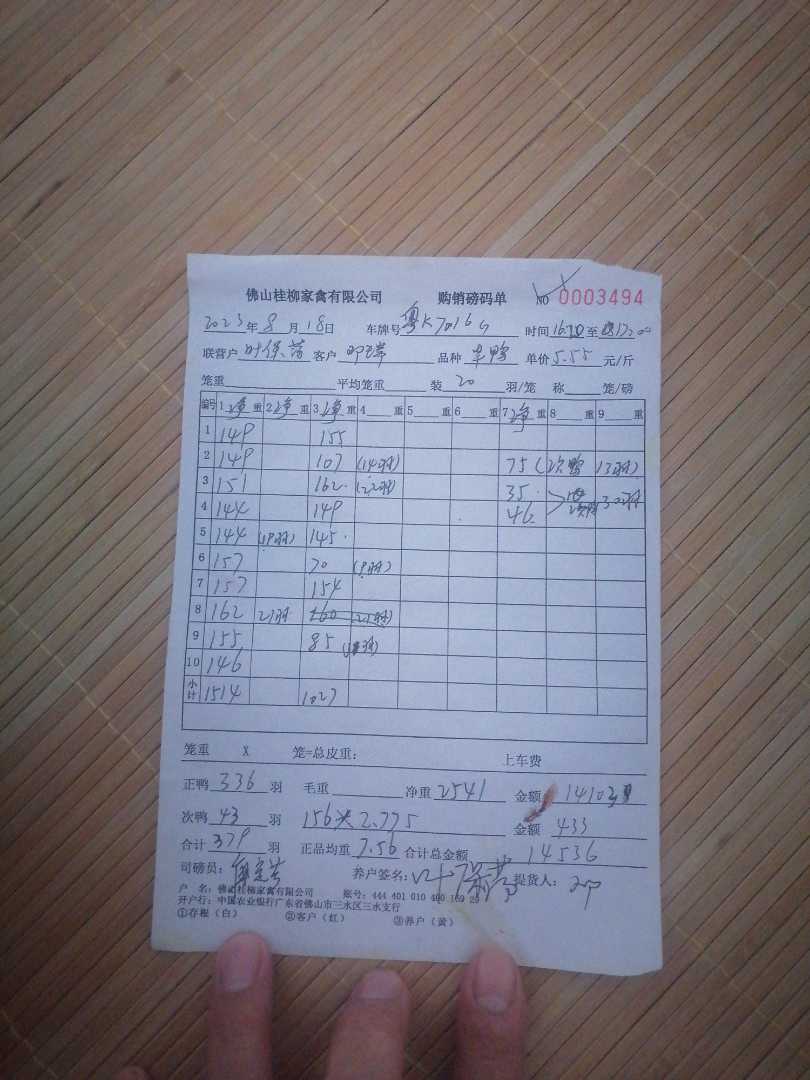 佛山桂柳家禽有限公司 购销磅码单 NO 0003494
2023年8月18日 车牌号粤K7016G 时间 至
联营户 客户 品种 单价5.55元/斤
笼重 平均笼重 装20羽/笼 称 笼/磅
编号 1净重 2净重 3净重 4重 5重 6重 7净重 8重 9重
1 149 155
2 149 107 (14羽) 75 (次鸭 13羽)
3 151 162 (22羽) 35
4 144 149 46 30羽
5 144 (19羽) 145
6 157 70 (9羽)
7 157 154
8 162 21羽 160 (21羽)
9 155 85
10 146
小计 1514 1027
笼重 X 笼=总皮重: 上车费
正鸭336羽 毛重 净重2541 金额
次鸭43羽 156头2.775 金额433
合计379羽 正品均重7.56 合计总金额14536
司磅员: 养户签名: 提货人:
户 名: 佛山桂柳家禽有限公司 账号: 444 401 010 400 169 20
开户行: 中国农业银行广东省佛山市三水区三水支行
①存根(白) ②客户(红) ③养户(黄)